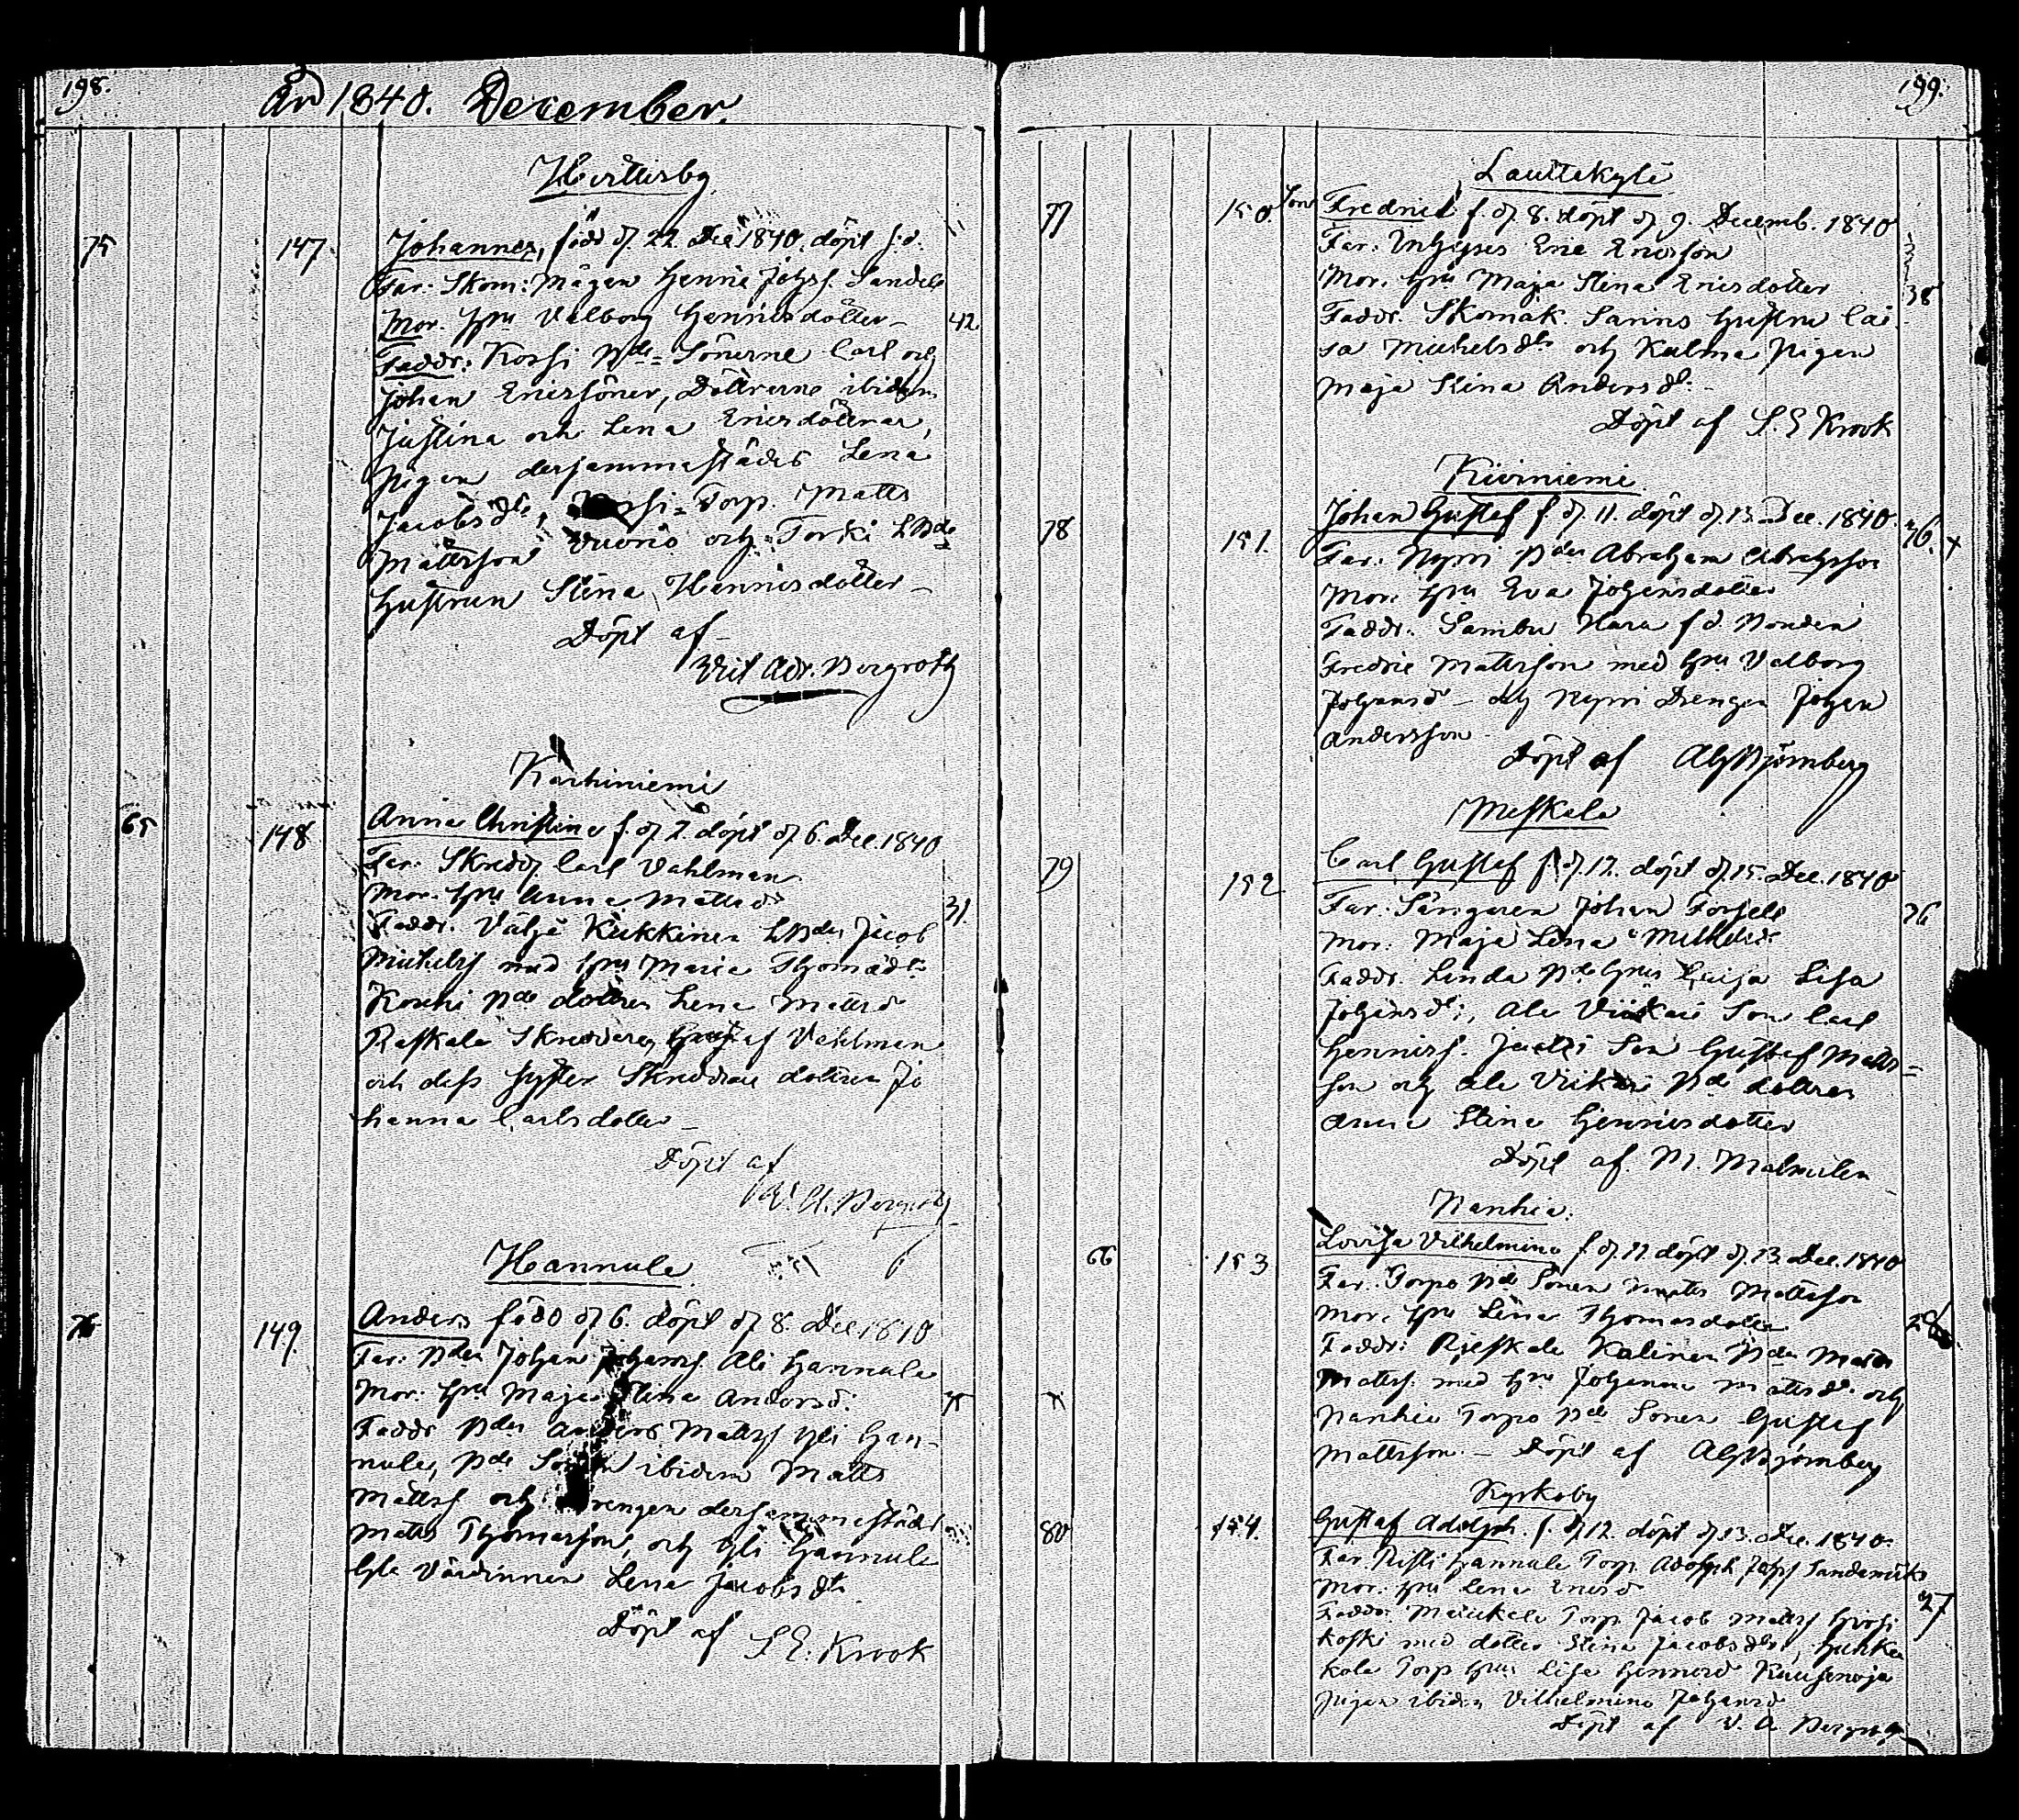 198.
År 1840. December.
Herttisby
75 147. Johannes, född d. 22. Dec 1840. döpt s.d.
Far: Skom: Mågen Henric Johss. Sandell
Mor. Hru Valborg Henricsdotter 42.
Faddr: Kossi Bde Sönerne Carl och
Johan Ericssöner, Döttrarne ibidem
Justina och Lena Ericsdöttrar,
Pigan dersammastädes Lena
Jacobsdr, Torp. Matts
Mattsson Vuorio och Torki LBde
Hustrun Stina Henricsdotter
Döpt af
Vict Adr. Bergroth
Karhiniemi
65 148 Anna Christina f. d. 2. döpt d. 6. Dec. 1840
Far: Skredd. Carl Vahlman
Mor. Hru Anna Mattsdr 31.
Faddr. Kukkinen LBden Jacob
Michelss med Hru Maria Thomasdr
Kouhi Bde dottren Lena Mattsdr
Raskala Skreddaren Gustaf Vahlman
och dess syster Skreddare dottren Jo
hanna Carlsdotter
Döpt af
V. A. Bergroth
Hannula
76 149. Anders född d. 6. döpt d. 8. Dec 1840
Far: Bden Johan Johanss. Ali Hannula
Mor: Hru Maja Stina Andersdr.
Faddr Bden Anders Mattss Yli Han-
nula, Bde Sonen ibidem Matts
Mattss och Drengen dersammastädes
Matts Thomasson, och Yli Hannula
Gla Värdinnan Lena Jacobsdr
Döpt af S. E. Krook
199.
Lauttakylä
77 150. Son Fredric f. d. 8. döpt d. 9. Decemb. 1840
Far: Inhyses Eric Ericsson
Mor. Hru Maja Stina Ericsdotter 38
Faddr. Skomak. Sarins Hustru Cai-
sa Michelsdr och Kulma Pigan
Maja Stina Andersdr.
Döpt af S. E Krook
Kiviniemi
78 151. Johan Gustaf f. d. 11. döpt d. 13. Dec. 1840. 36. x
Far: Nyrri Bden Abraham Abrahsson
Mor. Hru Eva Johansdotter
Faddr: Sambu Hara f d Bonden
Fredric Mattsson med Hru Valborg
Johansdr och Nyrri Drengen Johan
Andersson
Döpt af Ab Björnberg
Meskala
79 152 Carl Gustaf f. d. 12. döpt d. 15. Dec. 1840
Far: Sångaren Johan Forsell 36
Mor: Maja Lena Michelsdr.
Faddr. Linda Bde Hrun Caisa Lisa
Johansdr:, Ala Viikari Son Carl
Henricss. Jaakki Son Gustaf Matts-
son och Ala Viikari Bde dottren
Anna Stina Henricsdotter
Döpt af. M. Malmelin
Nanhia.
66 153 Lovisa Vilhelmina f. d. 11 döpt d. 13 Dec. 1840
Far: Torpo Bde Sonen Matts Mattsson
Mor. Hru Lena Thomasdotter
Faddr: Rieskala Kalinen Bden Matts
Mattss. med Hru Johanna Mattsdr. och
Nanhia Torpo Bde Sonen Gustaf
Mattsson. Döpt af Ab Björnberg
Kyrkoby
80 154. Gustaf Adolph. f. d. 12. döpt d. 13. Dec. 1840.
Far. Risti Hannula Torp. Adolph Johss Sandernick
Mor: Hru Lena Ericsdr 27
Faddr. Maukela Torp Jacob Mattss
koski med dotter Stina Jacobsdr, Huhka
kala Torp Hru Lisa Henricsdr
Pigan ibidem Vilhelmina Johansdr
Döpt af V. A Bergroth